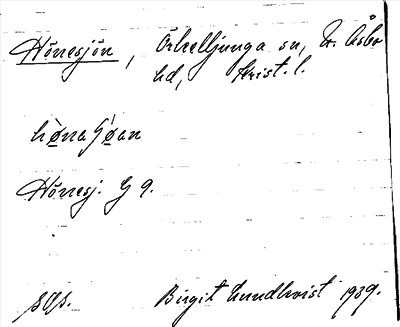 Hönesjön, Örkelljunga sn, N. Åsbo
hd, Krist. l.
hø̀naʃøan
Hönesj. G 9.
Birgit Lundkvist 1939.